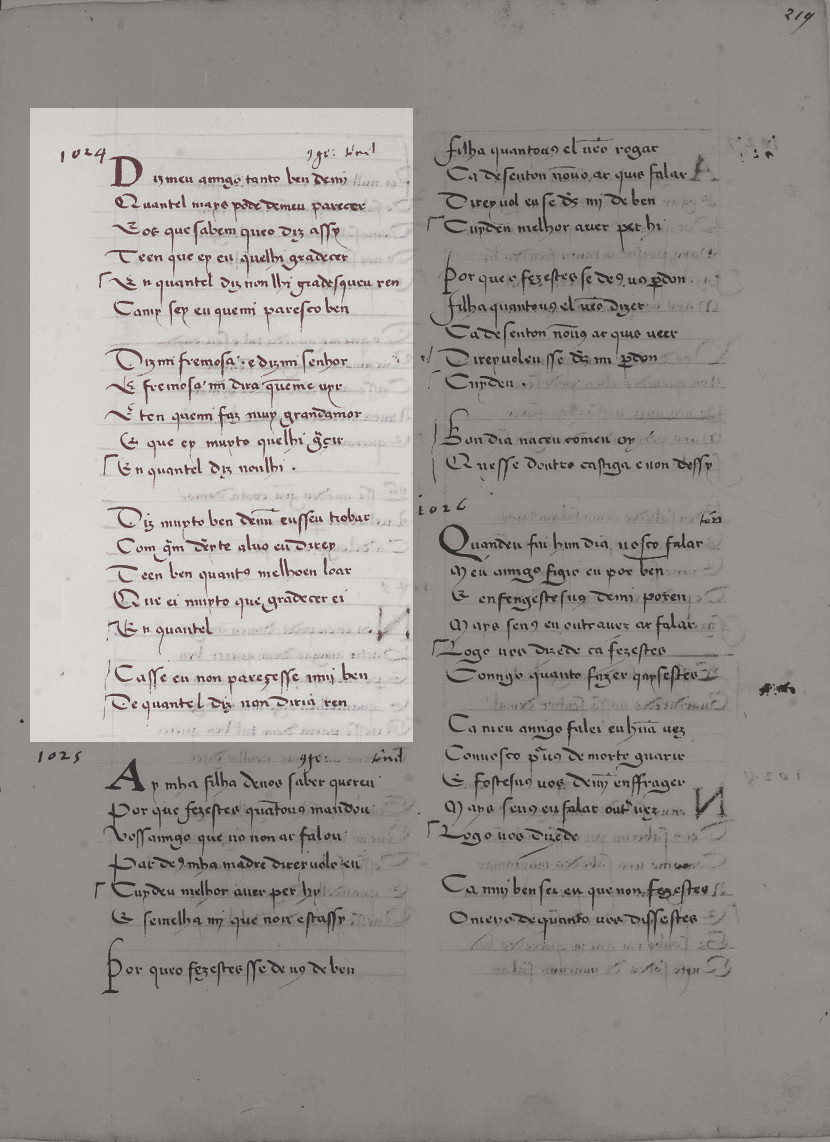 219
1024
Diz meu amigo tanto ben demi
Quantel mays pode demeu parecer
Eos que sabem queo diz assy
Teen que ey eu quelhi gradecer
En quantel diz non lhi gradesqueu ren
Camy sey eu quemi paresco ben
Dizmi fremosa e dizmi senhor
E fremosa mi dira quem me uyr
E ten quemi faz muy grandamor
E que ey muyto quelhi
En quantel diz nonlhi .
Diz muyto ben eusseu trobar
Com aluo eu direy
Teen ben quantꝯ melhoen loar
Que ei muyto que gradecer ei
En quantel
Casse eu non pareçesse muy ben
De quantel diz non diria ren
1025
Ay mha filha denos saber quereu
Por que fezestes quātouꝯ mandou
Vossamigo que uꝯ non ar falou
Par deꝯ mha madre direruolo eu
Cuydeu melhor auer per hy
E semelha mj que non estassy
Por queo fezestes sse deuꝯ de ben
filha quantouꝯ el ueo rogar
Ca de senton nouꝯ ar quis falar
Direyuol eu se dꝯ mj de ben
Cuydeu melhor auer per hi
Por que o fezestes se deꝯ uꝯ pdon
filha quantouꝯ el ueo dizer
Ca de senton nouꝯ ar quis ueer
Direyuoleu sse dꝯ mi pdon
Cuydeu .
Bon dia naceu comeu oy
Quesse doutro castiga e non dossy
1026
Quandeu fui hun dia uosco falar
Meu amigo figio eu por ben
E enfengestesuꝯ demi poren
Mays seuꝯ eu outra uez ar falar
Logo uos dizede ca fezestes
Comigo quanto fazer quysestes
Ca meu amigo falei eu hūa uez
Conuosco de morte guarir
E fostesuꝯ uos demj enffrager
Mays seuꝯ eu falar uez
Logo uos dizede
Ca muy ben sei eu que non fezestes
O meyo de quanto uos dissestes